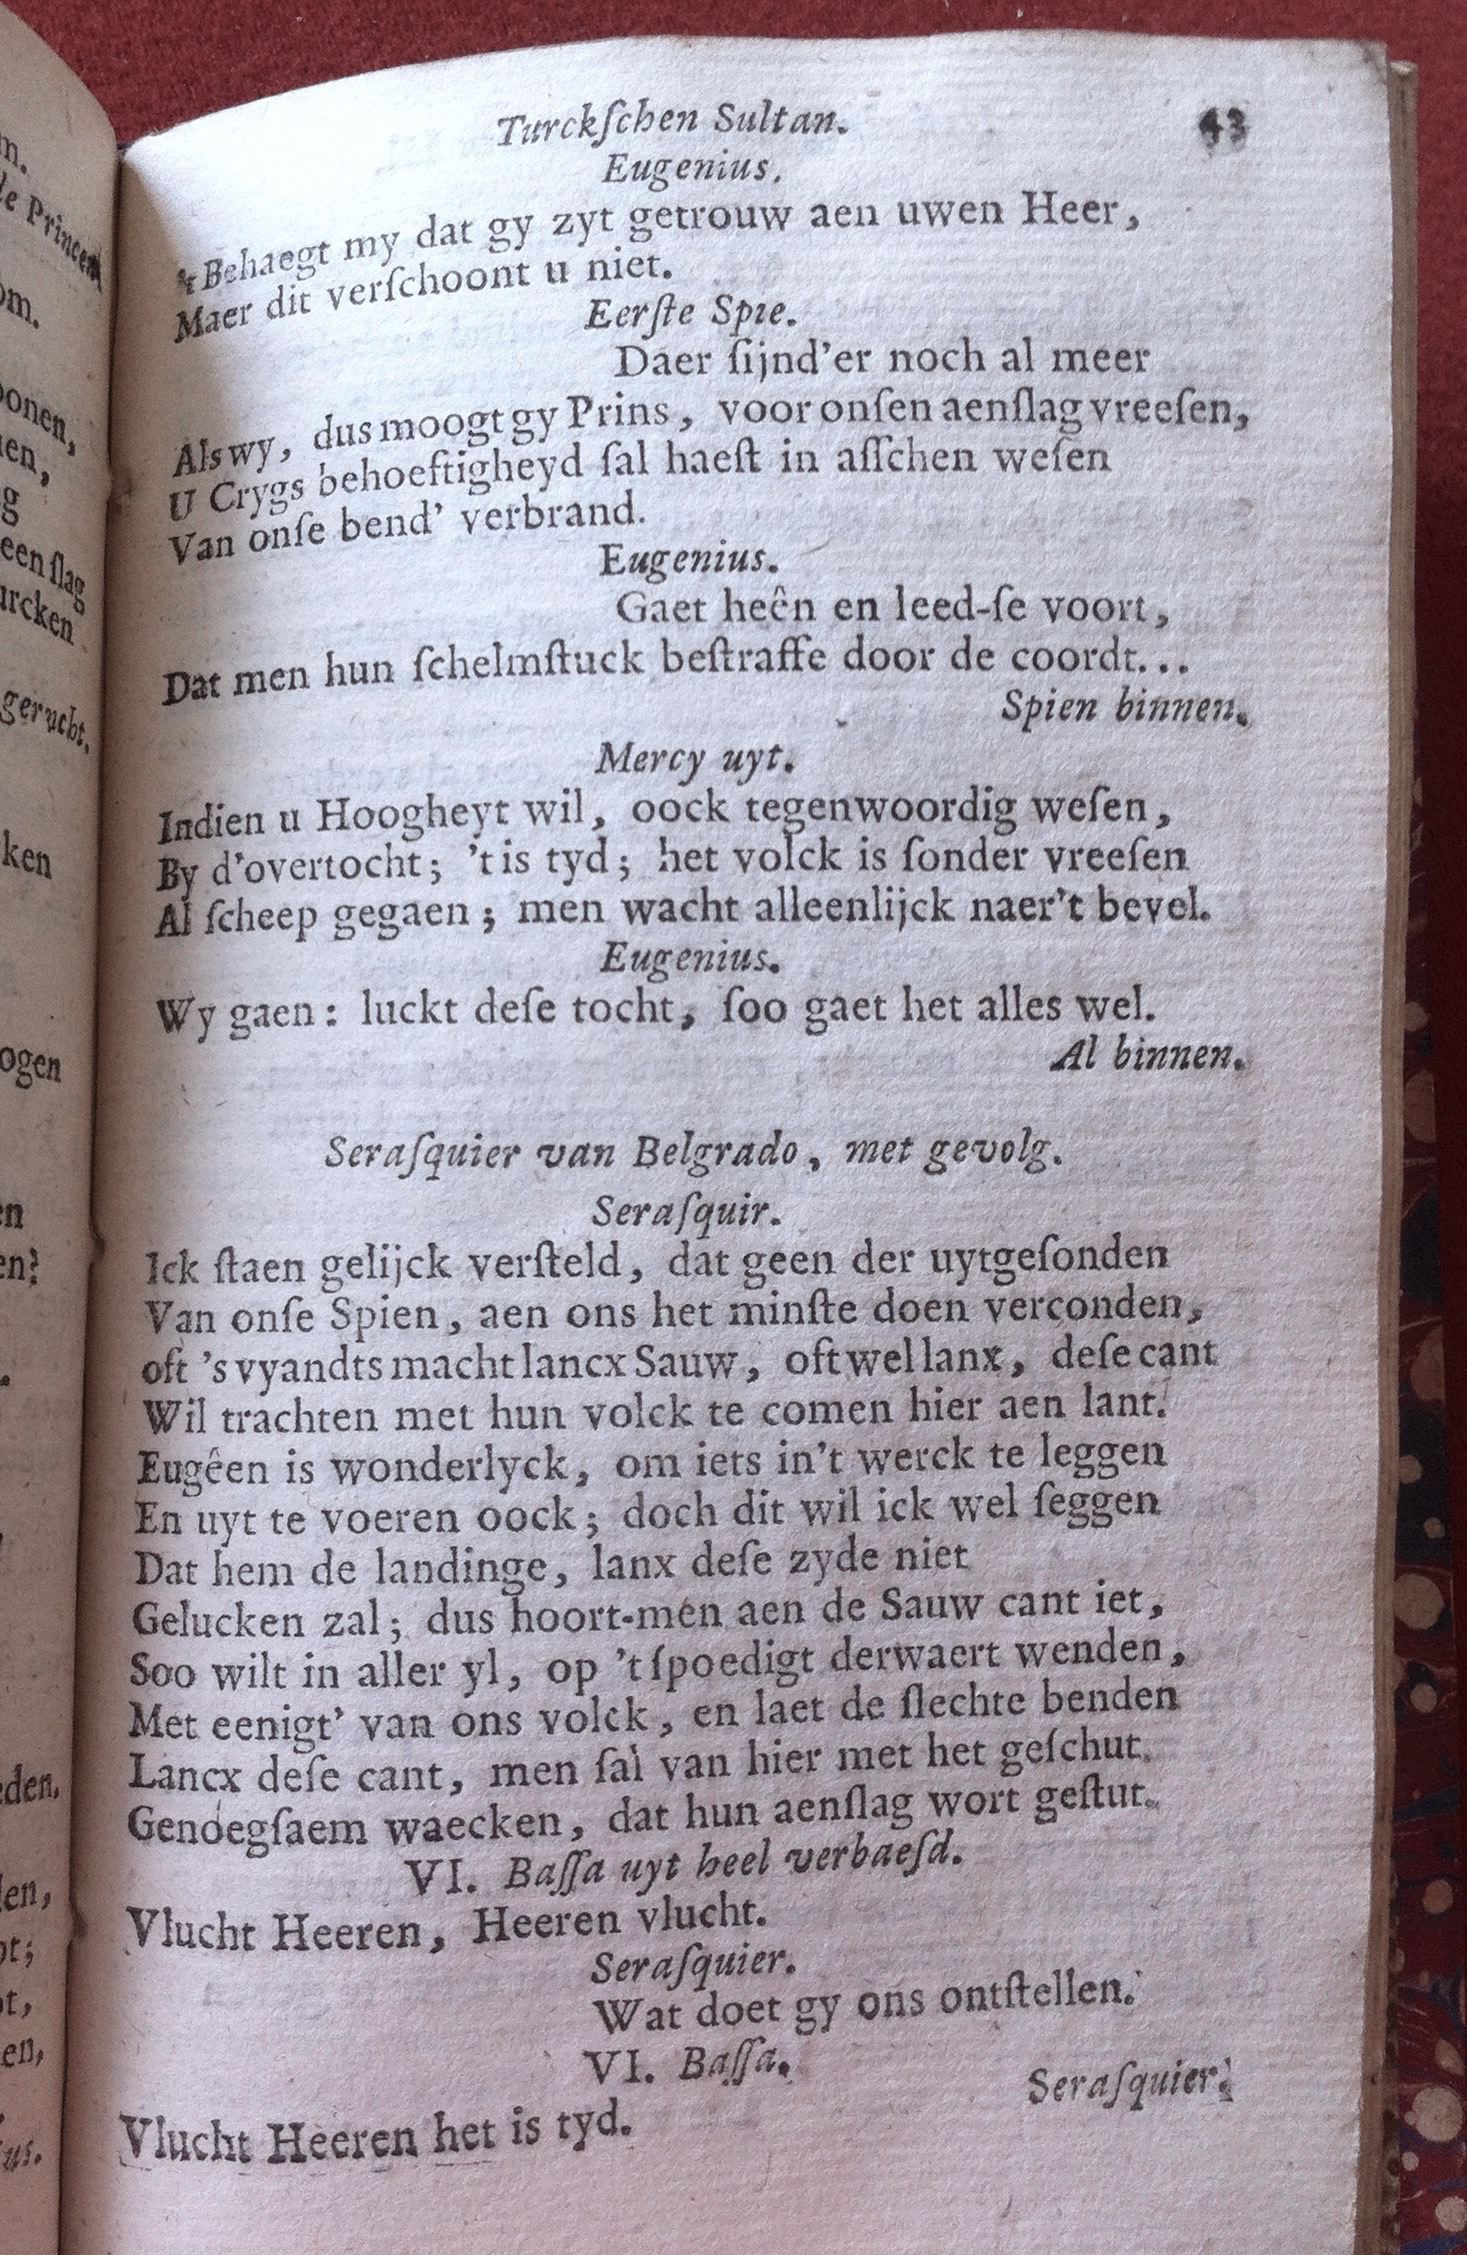 Turckſchen Sultan. 43
Eugenius.
't Behaegt my dat gy zyt getrouw aen uwen Heer,
Maer dit verſchoont u niet.
Eerſte Spie.
Daer ſijnd'er noch al meer
Als wy, dus moogt gy Prins, voor onſen aenſlag vreeſen,
U Crygs behoeftigheyd ſal haeſt in aſſchen weſen
Van onſe bend' verbrand.
Eugenius.
Gaet heên en leed-ſe voort,
Dat men hun ſchelmſtuck beſtraffe door de coordt...
Spien binnen.
Mercy uyt.
Indien u Hoogheyt wil, oock tegenwoordig weſen,
By d'overtocht; 't is tyd; het volck is ſonder vreeſen
Al ſcheep gegaen; men wacht alleenlijck naer't bevel.
Eugenius.
Wy gaen: luckt deſe tocht, ſoo gaet het alles wel.
Al binnen.
Seraſquier van Belgrado, met gevolg.
Seraſquir.
Ick ſtaen gelijck verſteld, dat geen der uytgeſonden
Van onſe Spien, aen ons het minſte doen verconden,
oft 's vyandts macht lancx Sauw, oft wel lanx, deſe cant
Wil trachten met hun volck te comen hier aen lant.
Eugêen is wonderlyck, om iets in't werck te leggen
En uyt te voeren oock; doch dit wil ick wel ſeggen
Dat hem de landinge, lanx deſe zyde niet
Gelucken zal; dus hoort-men aen de Sauw cant iet,
Soo wilt in aller yl, op 't ſpoedigt derwaert wenden,
Met eenigt' van ons volck, en laet de ſlechte benden
Lancx deſe cant, men ſal van hier met het geſchut.
Genoegſaem waecken, dat hun aenſlag wort geſtut.
VI. Baſſa uyt heel verbaeſd.
Vlucht Heeren, Heeren vlucht.
Seraſquier.
Wat doet gy ons ontſtellen.
VI. Baſſa.
Vlucht Heeren het is tyd.
Seraſquier.